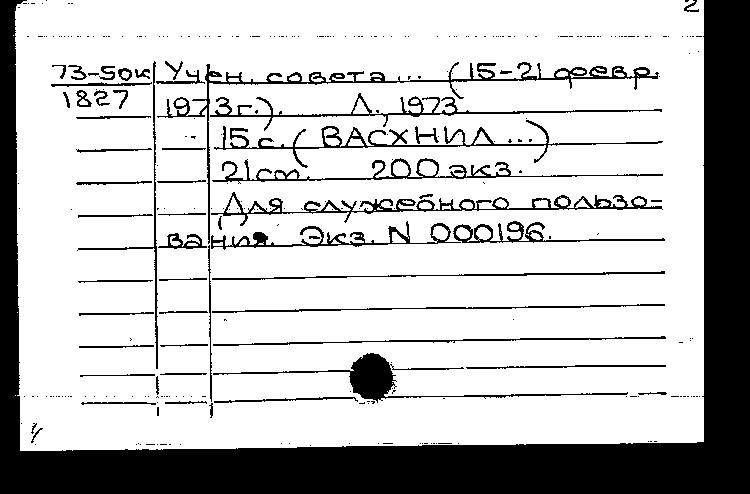 2
73-50к Учен. совета... (15-21 февр.
1827 1973г.). Л., 1973.
15 с. (ВАСХНИЛ...)
21 см. 200 экз.
Для служебного пользо-
вания. Экз. N 000196.